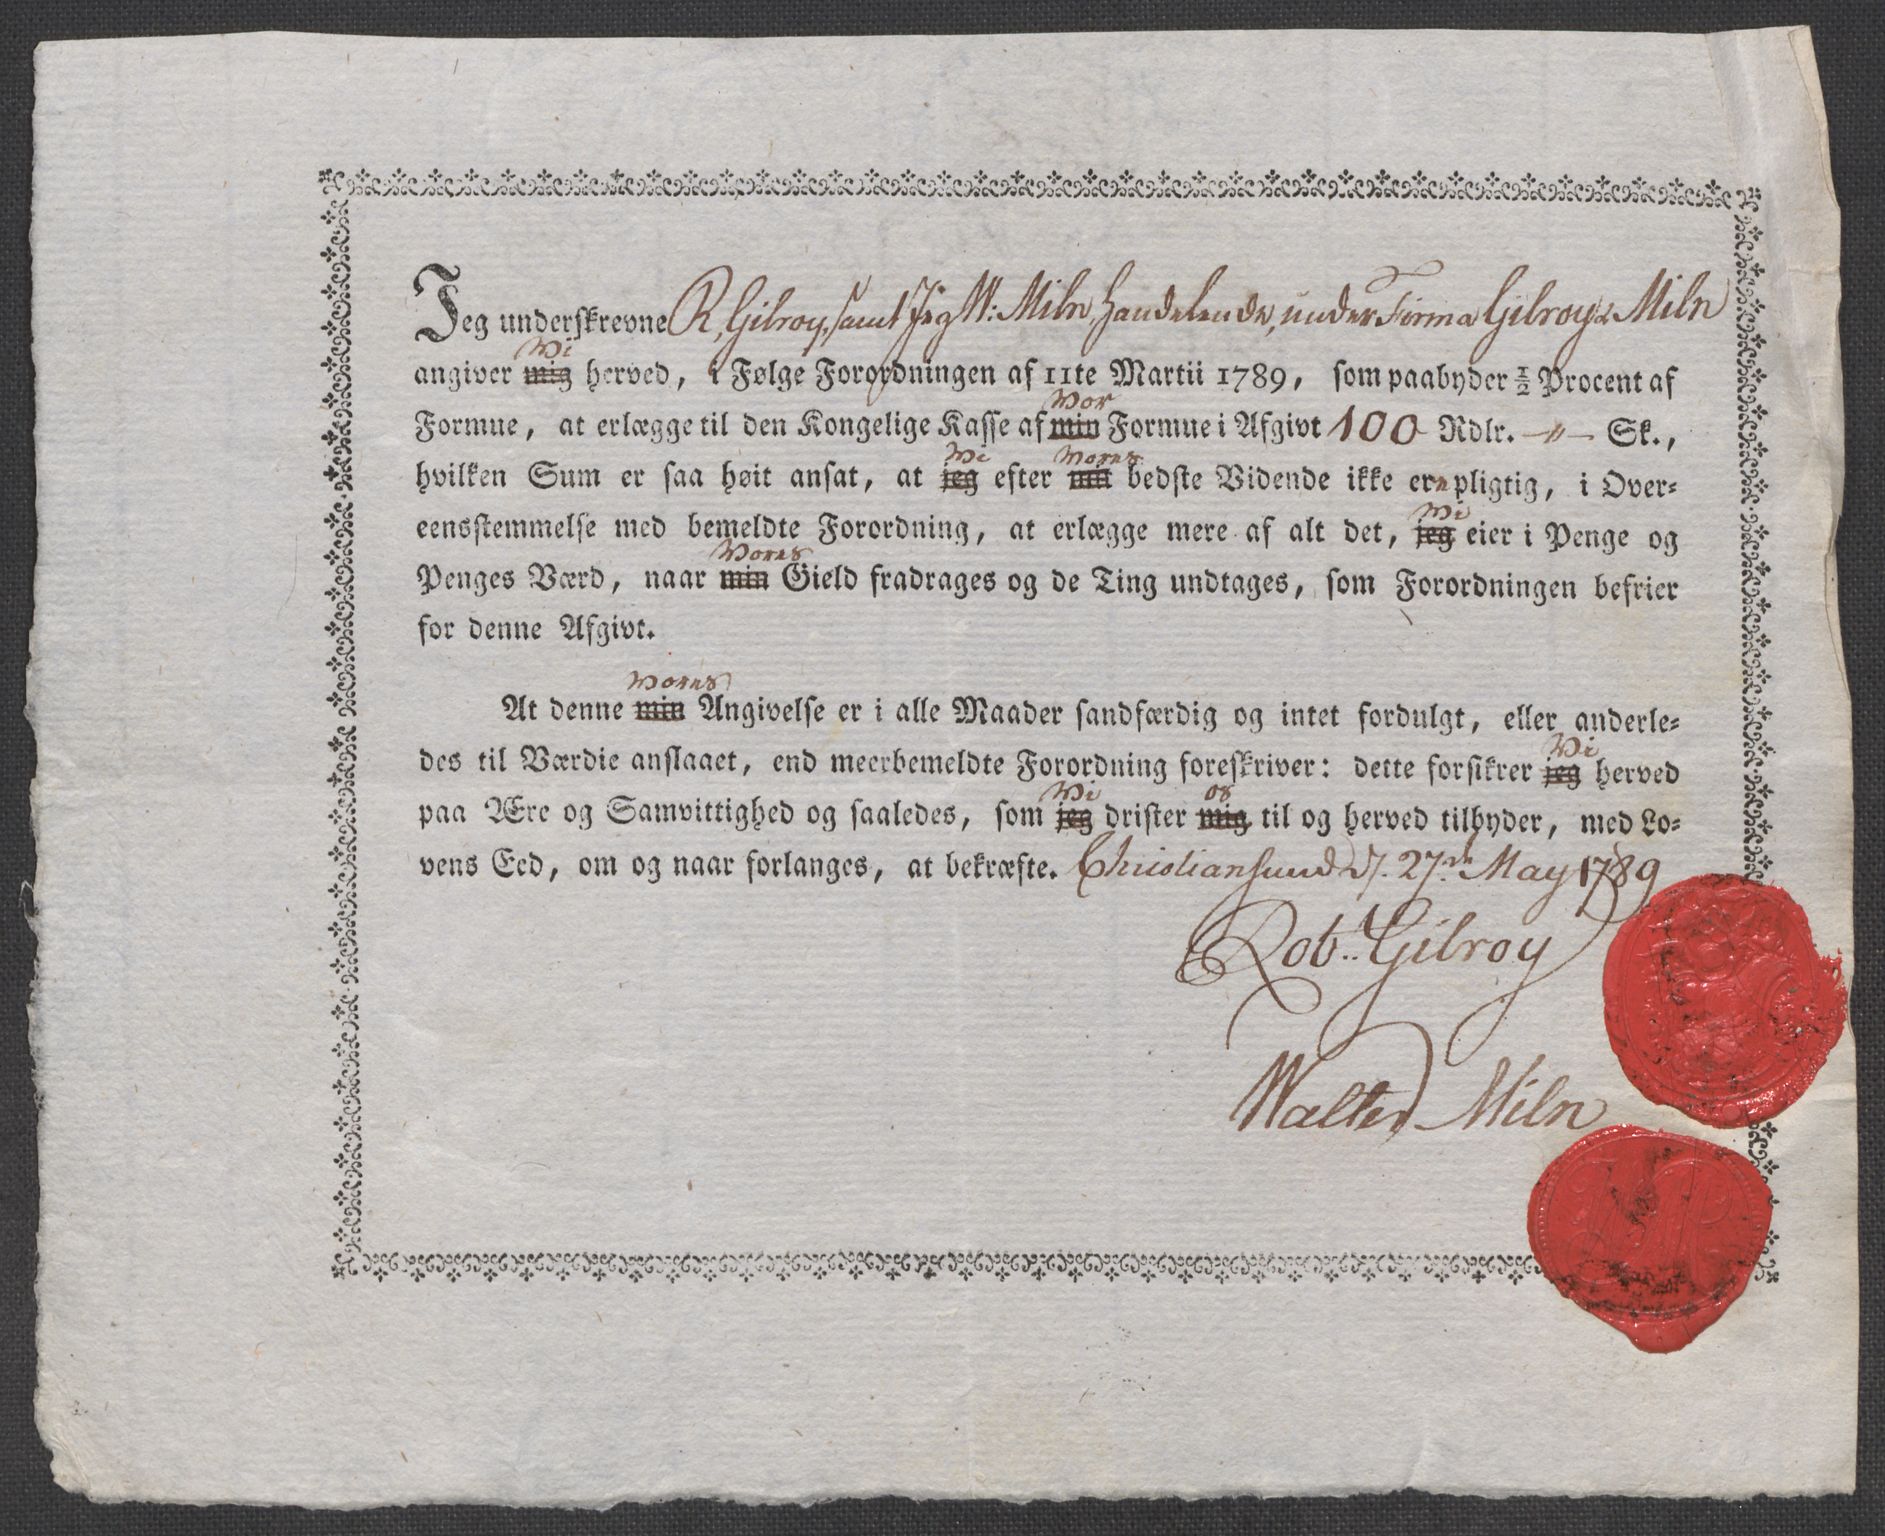 Jeg underskrevne R. Gilroy, samt Jeg W: Miln, handelende, under Firma Gilroy & Miln
Wi
angiver mig herved, i Følge Forordningen af 11te Martii 1789, som paabyder ½ Procent af
Wor
Formue, at erlægge til den Kongelige Kasse af min Formue i Afgivt 100 Rdlr. —〃— Sk.,
Wi Wores
hvilken Sum er saa høit ansat, at jeg efter min bedste Vidende ikke er pligtig, i Over=
Wi
eensstemmelse med bemeldte Forordning, at erlægge mere af alt det, jeg eier i Penge og
Wores
Penges Værd, naar min Gield fradrages og de Ting undtages, som Forordningen befrier
for denne Afgivt.
Wores
At denne min Angivelse er i alle Maader sandfærdig og intet fordulgt, eller anderle=
Wi
des til Værdie anslaaet, end meerbemeldte Forordning foreskriver: dette forsikrer jeg herved
Wi os
paa Ære og Samvittighed og saaledes, som jeg drister mig til og herved tilbyder, med Lo=
vens Eed, om og naar forlanges, at bekræfte. Christiansund d. 27de May 1789
Rob. Gilroy
Walter Miln